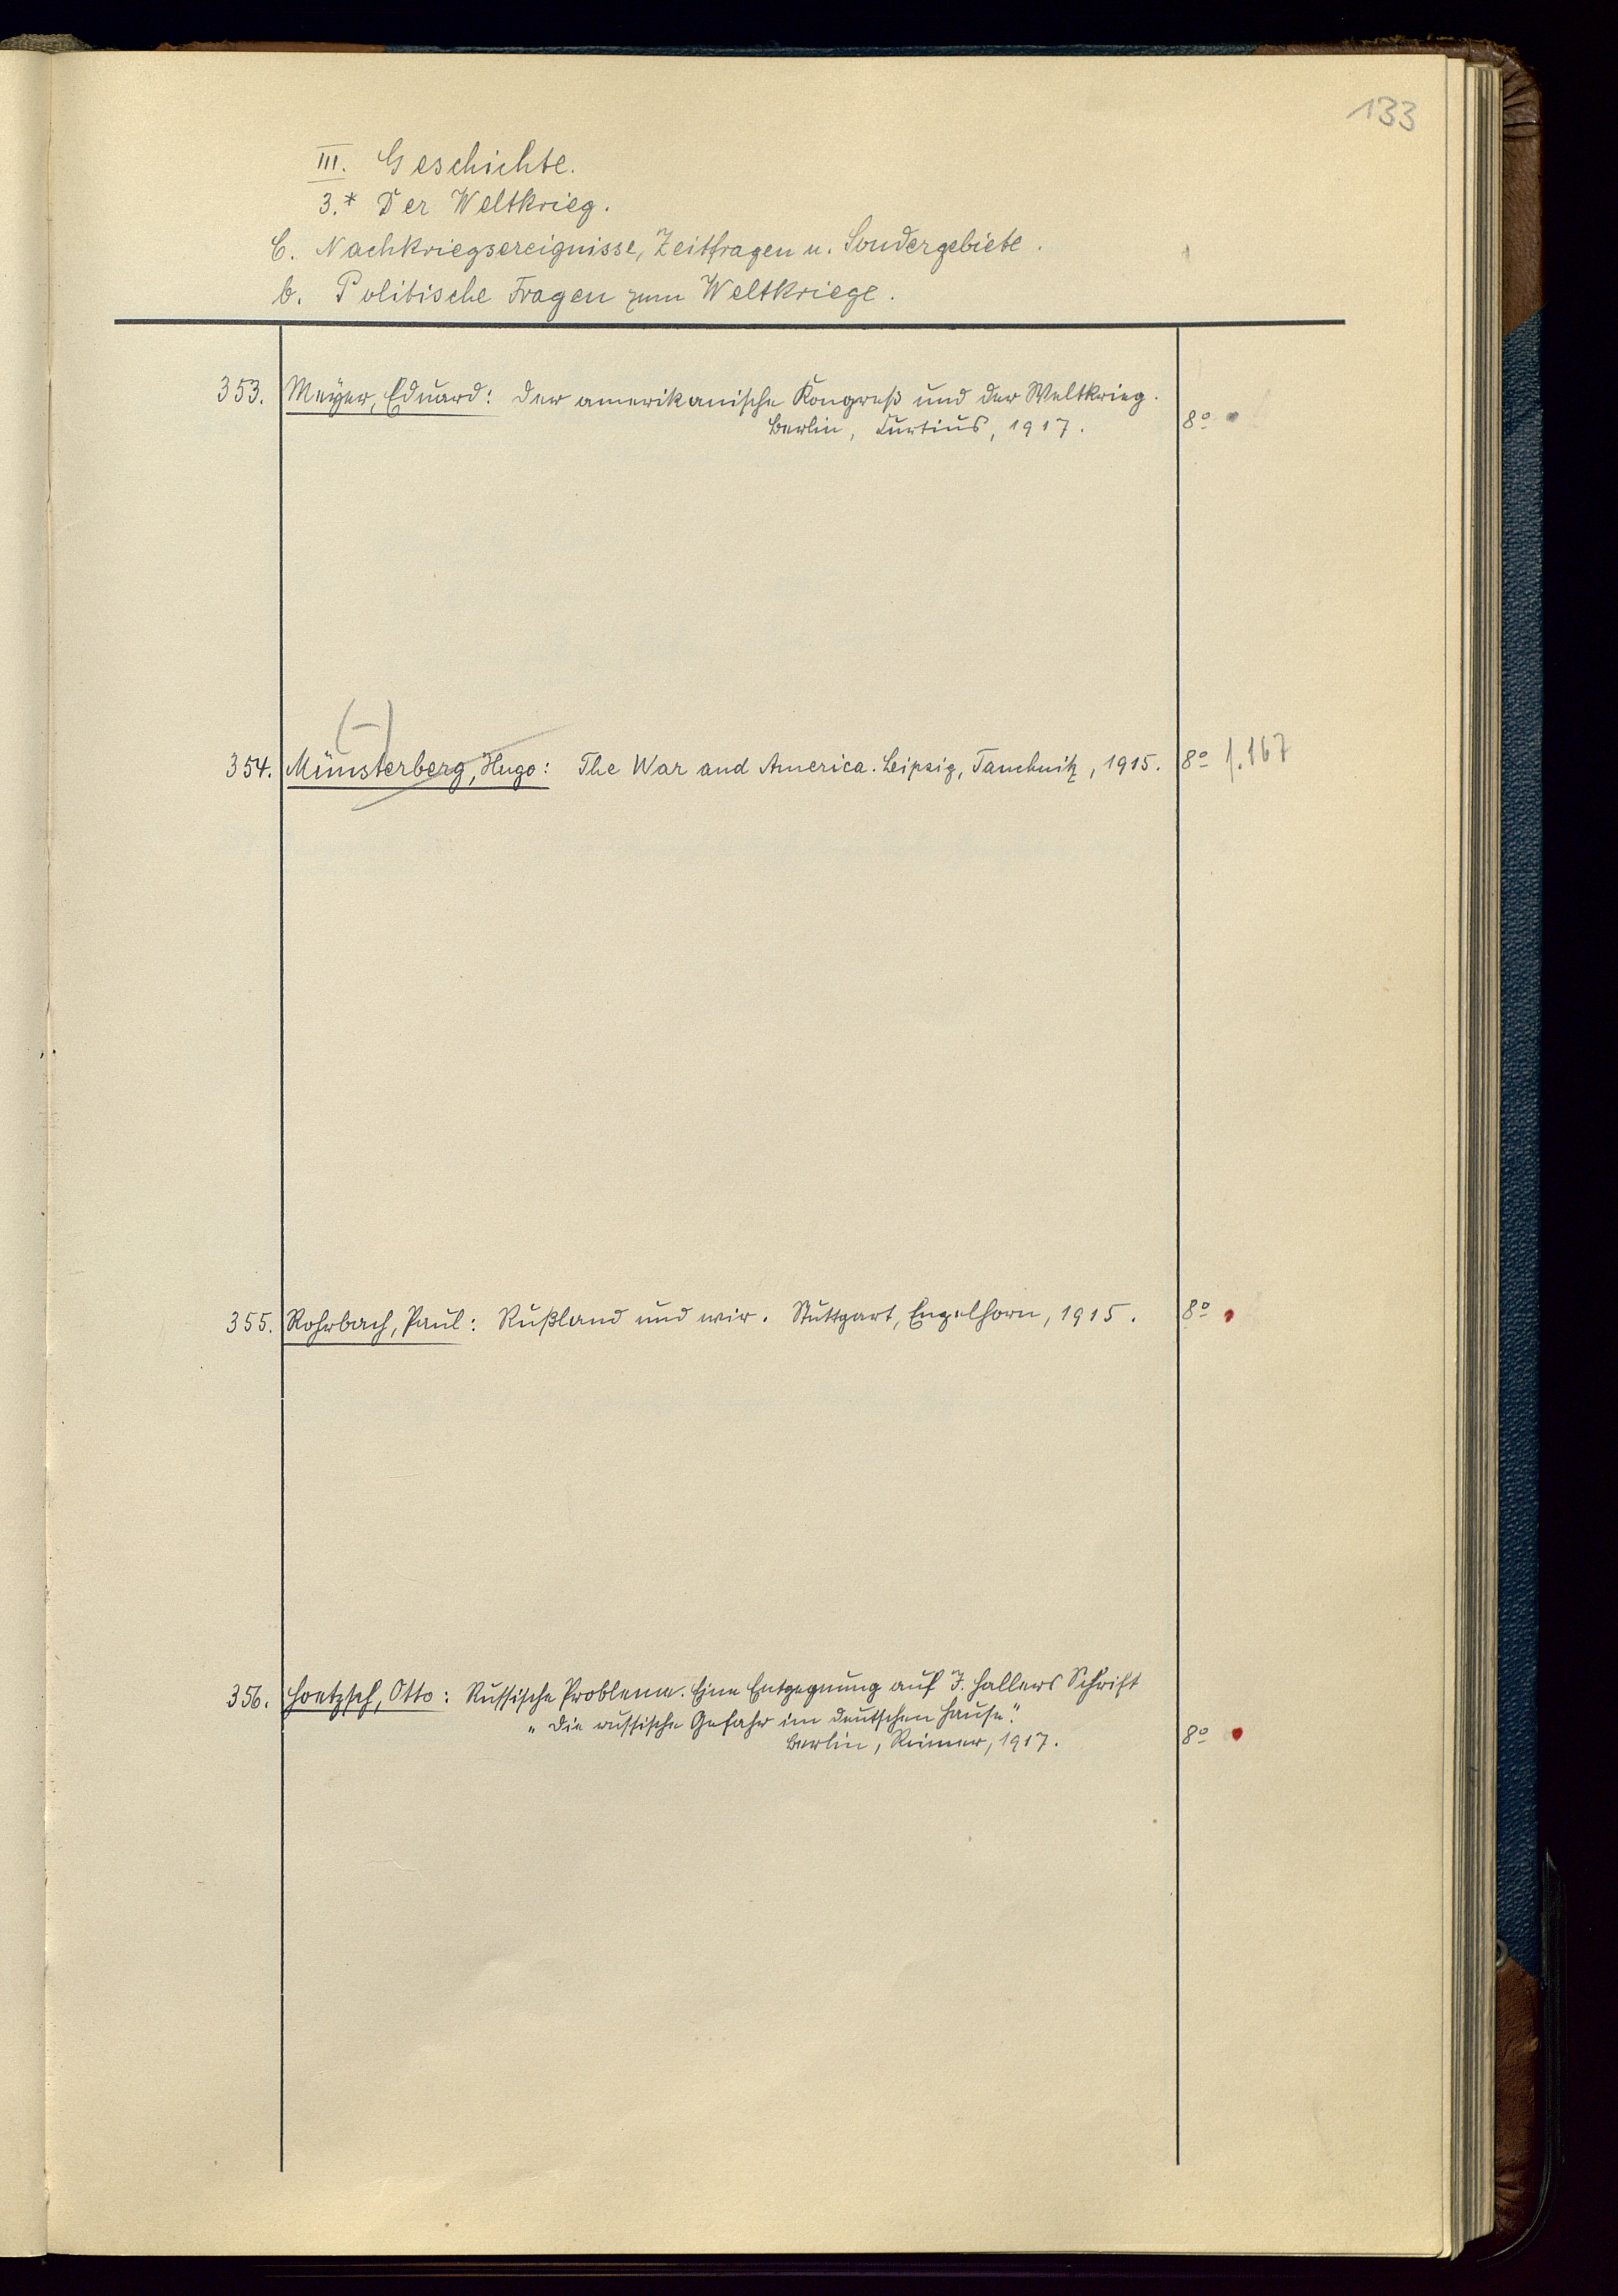 133
III. Geschichte.
3.* Der Weltkrieg.
C. Nachkriegsereignisse, Zeitfragen u. Sondergebiete.
b. Politische Fragen zum Weltkriege.
353. Meyer, Eduard: Der amerikanische Kongreß und der Weltkrieg.
Berlin, Curtius, 1917. 8º
(-)
354. Münsterberg, Hugo: The War and America. Leipzig, Tauchnitz, 1915. 8º f. 167
355. Rohrbach, Paul: Rußland und wir. Stuttgart, Engelhorn, 1915. 8º
356. Hoetzsch, Otto: Russische Probleme. Eine Entgegnung auf J. Hallers Schrift
„Die russische Gefahr im deutschen Hause."
Berlin, Reimer, 1917. 8º